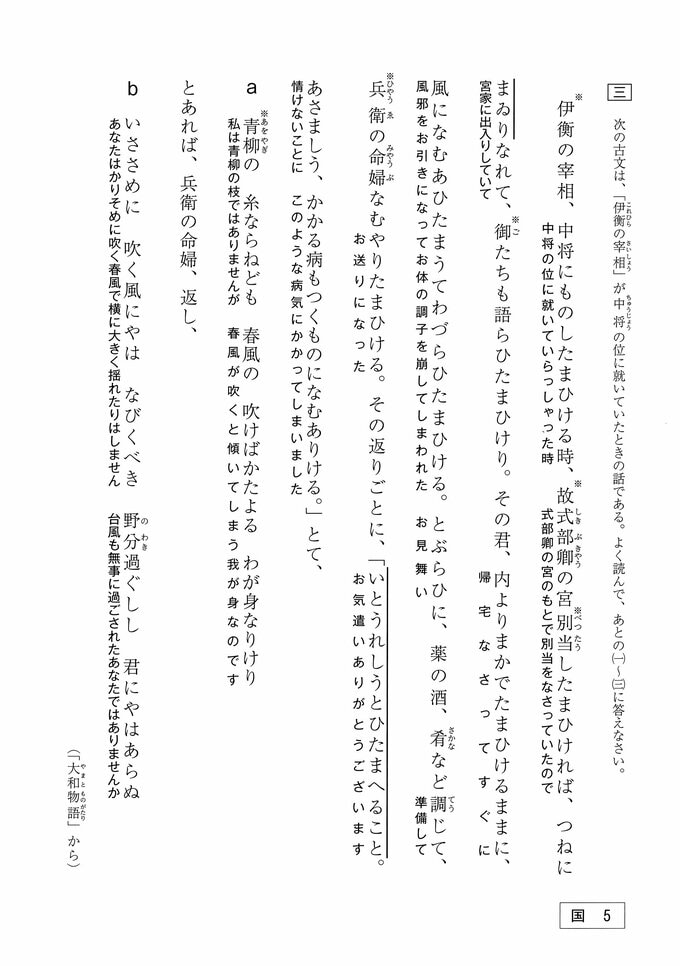 三 次の古文は、「伊衡の宰相」が中将の位に就いていたときの話である。よく読んで、あとの㈠～㈢に答えなさい。
これひら さいしょう ちゅうじょう
※ ※ ※
伊衡の宰相、中将にものしたまひける時、故式部卿の宮別当したまひければ、つねに
しきぶきやう べつたう
中将の位に就いていらっしゃった時 式部卿の宮のもとで別当をなさっていたので
まゐりなれて、御たちも語らひたまひけり。その君、内よりまかでたまひけるままに、
※ご
宮家に出入りしていて 帰宅なさってすぐに
風になむあひたまうてわづらひたまひける。とぶらひに、薬の酒、肴など調じて、
さかな てう
風邪をお引きになってお体の調子を崩してしまわれた お見舞い 準備して
兵衛の命婦なむやりたまひける。その返りごとに、「いとうれしうとひたまへること。
※ひやうゑ みやうぶ
お送りになった お気遣いありがとうございます
あさましう、かかる病もつくものになむありける。」とて、
情けないことに このような病気にかかってしまいました
a 青柳の 糸ならねども 春風の 吹けばかたよる わが身なりけり
※あをやぎ
私は青柳の枝ではありませんが 春風が吹くと傾いてしまう我が身なのです
とあれば、兵衛の命婦、返し、
b いささめに 吹く風にやは なびくべき 野分過ぐしし 君にやはあらぬ
のわき
あなたはかりそめに吹く春風で横に大きく揺れたりはしません 台風も無事に過ごされたあなたではありませんか
（「大和物語」から）
やまとものがたり
国 5